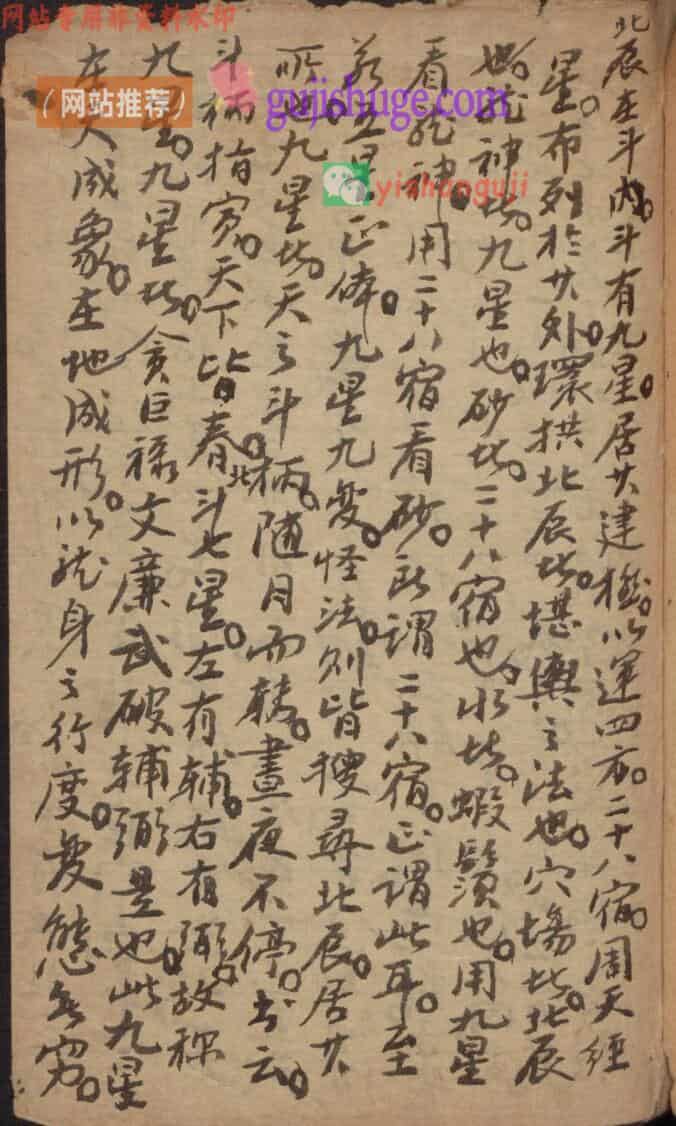 网站专用非资料水印
（网站推荐）
gujishuge.com
yishanguji
北辰在斗内。斗有九星。居其建极。以运四方。二十八宿。周天经
星。布列於其外。環拱北辰者。堪輿之法也。穴塲者。北辰
也。龙神者。九星也。砂者。二十八宿也。水者。蝦鬚也。用九星
看龙神。用二十八宿看砂。所謂二十八宿。正謂此耳。至
若五星正体。九星九变。怪法。则皆搜尋北辰。居其
所也。九星者。天之斗柄。随月而轉。晝夜不停。书云。
斗柄指寅。天下皆春。北斗七星。左有輔。右有弼。故称
九星。九星者。贪巨禄文廉武破輔弼是也。此九星
在天成象。在地成形。以龙身之行度。变態无穷。